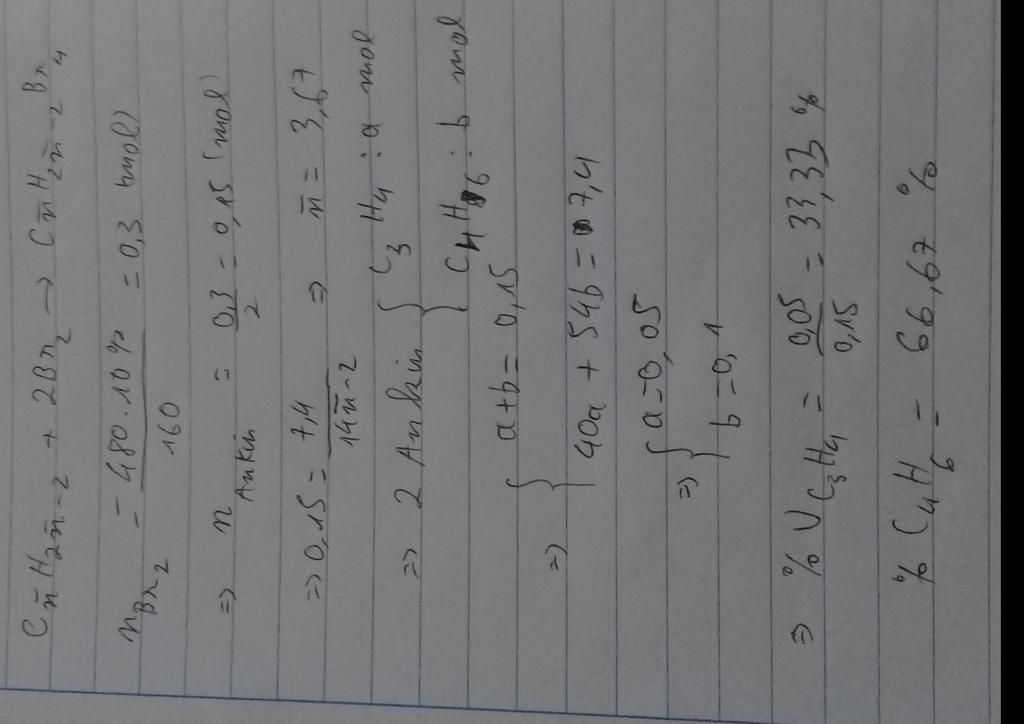 Cn̄H2n̄-2 + 2Br2 → Cn̄H2n̄-2Br4
nBr2 = 480.10% / 160 = 0,3 (mol)
⇒ nAnkin = 0,3 / 2 = 0,15 (mol)
⇒ 0,15 = 7,4 / 14n̄-2 ⇒ n̄ = 3,67
⇒ 2 Ankin { C3H4 : a mol
C4H6 : b mol
⇒ { a+b = 0,15
40a + 54b = 7,4
⇒ { a=0,05
b=0,1
⇒ % VC3H4 = 0,05 / 0,15 = 33,33 %
% C4H6 = 66,67 %